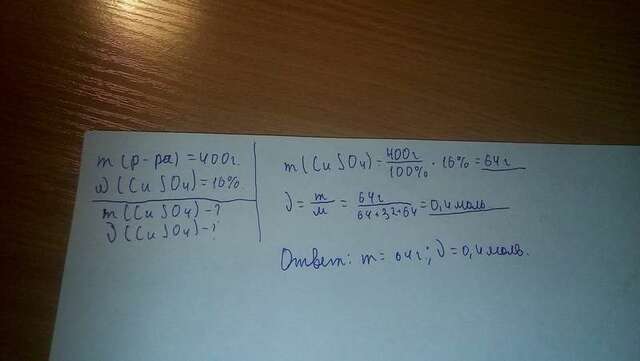 m (р-ра) = 400г.
ω (CuSO4) = 16%.
m (CuSO4) - ?
ν (CuSO4) - ?
m (CuSO4) = 400г / 100% · 16% = 64г
ν = m / M = 64г / 64+32+64 = 0,4 моль
Ответ: m = 64г; ν = 0,4 моль.